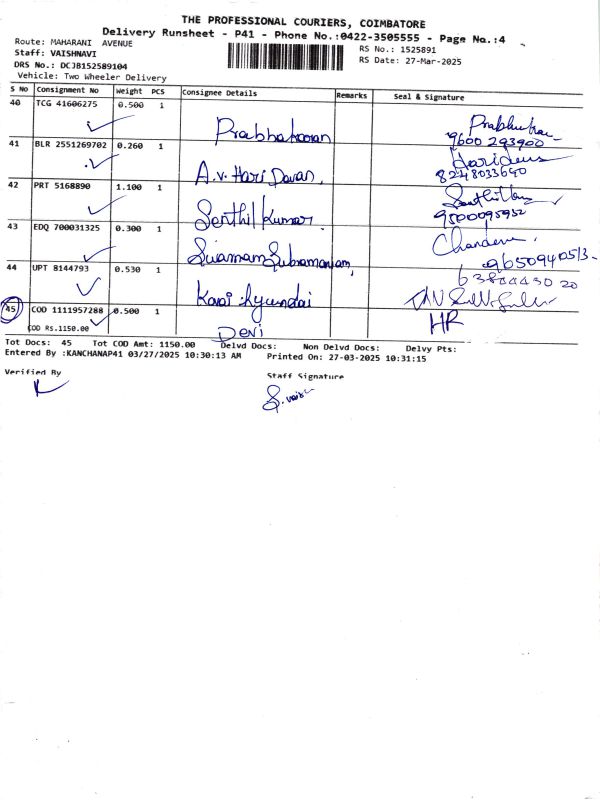 THE PROFESSIONAL COURIERS, COIMBATORE
Delivery Runsheet - P41 - Phone No.:0422-3505555 - Page No.:4
Route: MAHARANI AVENUE
RS No.: 1525891
Staff: VAISHNAVI
RS Date: 27-Mar-2025
DRS No.: DCJB152589104
Vehicle: Two Wheeler Delivery
S No Consignment No Weight PCS Consignee Details Remarks Seal & Signature
40 TCG 41606275 0.500 1 Prabhakaran
9600 293900
41 BLR 2551269702 0.260 1 A.V. Hari Davan.
8248033640
42 PRT 5168890 1.100 1 Senthil Kumar
43 EDQ 700031325 0.300 1 Subramaniam
9650940513
44 UPT 8144793 0.530 1 Hyundai
45 COD 1111957288 0.500 1 HR
COD Rs.1150.00 Devi
Tot Docs: 45 Tot COD Amt: 1150.00 Delvd Docs: Non Delvd Docs: Delvy Pts:
Entered By :KANCHANAP41 03/27/2025 10:30:13 AM Printed On: 27-03-2025 10:31:15
Verified By Staff Signature